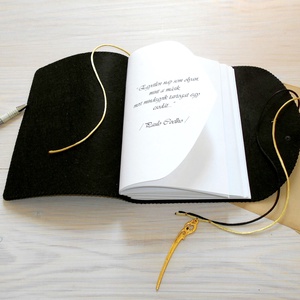 "Egyetlen nap sem olyan,
mint a másik,
mert mindegyik tartogat egy
csodát..."
/ Paulo Coelho /